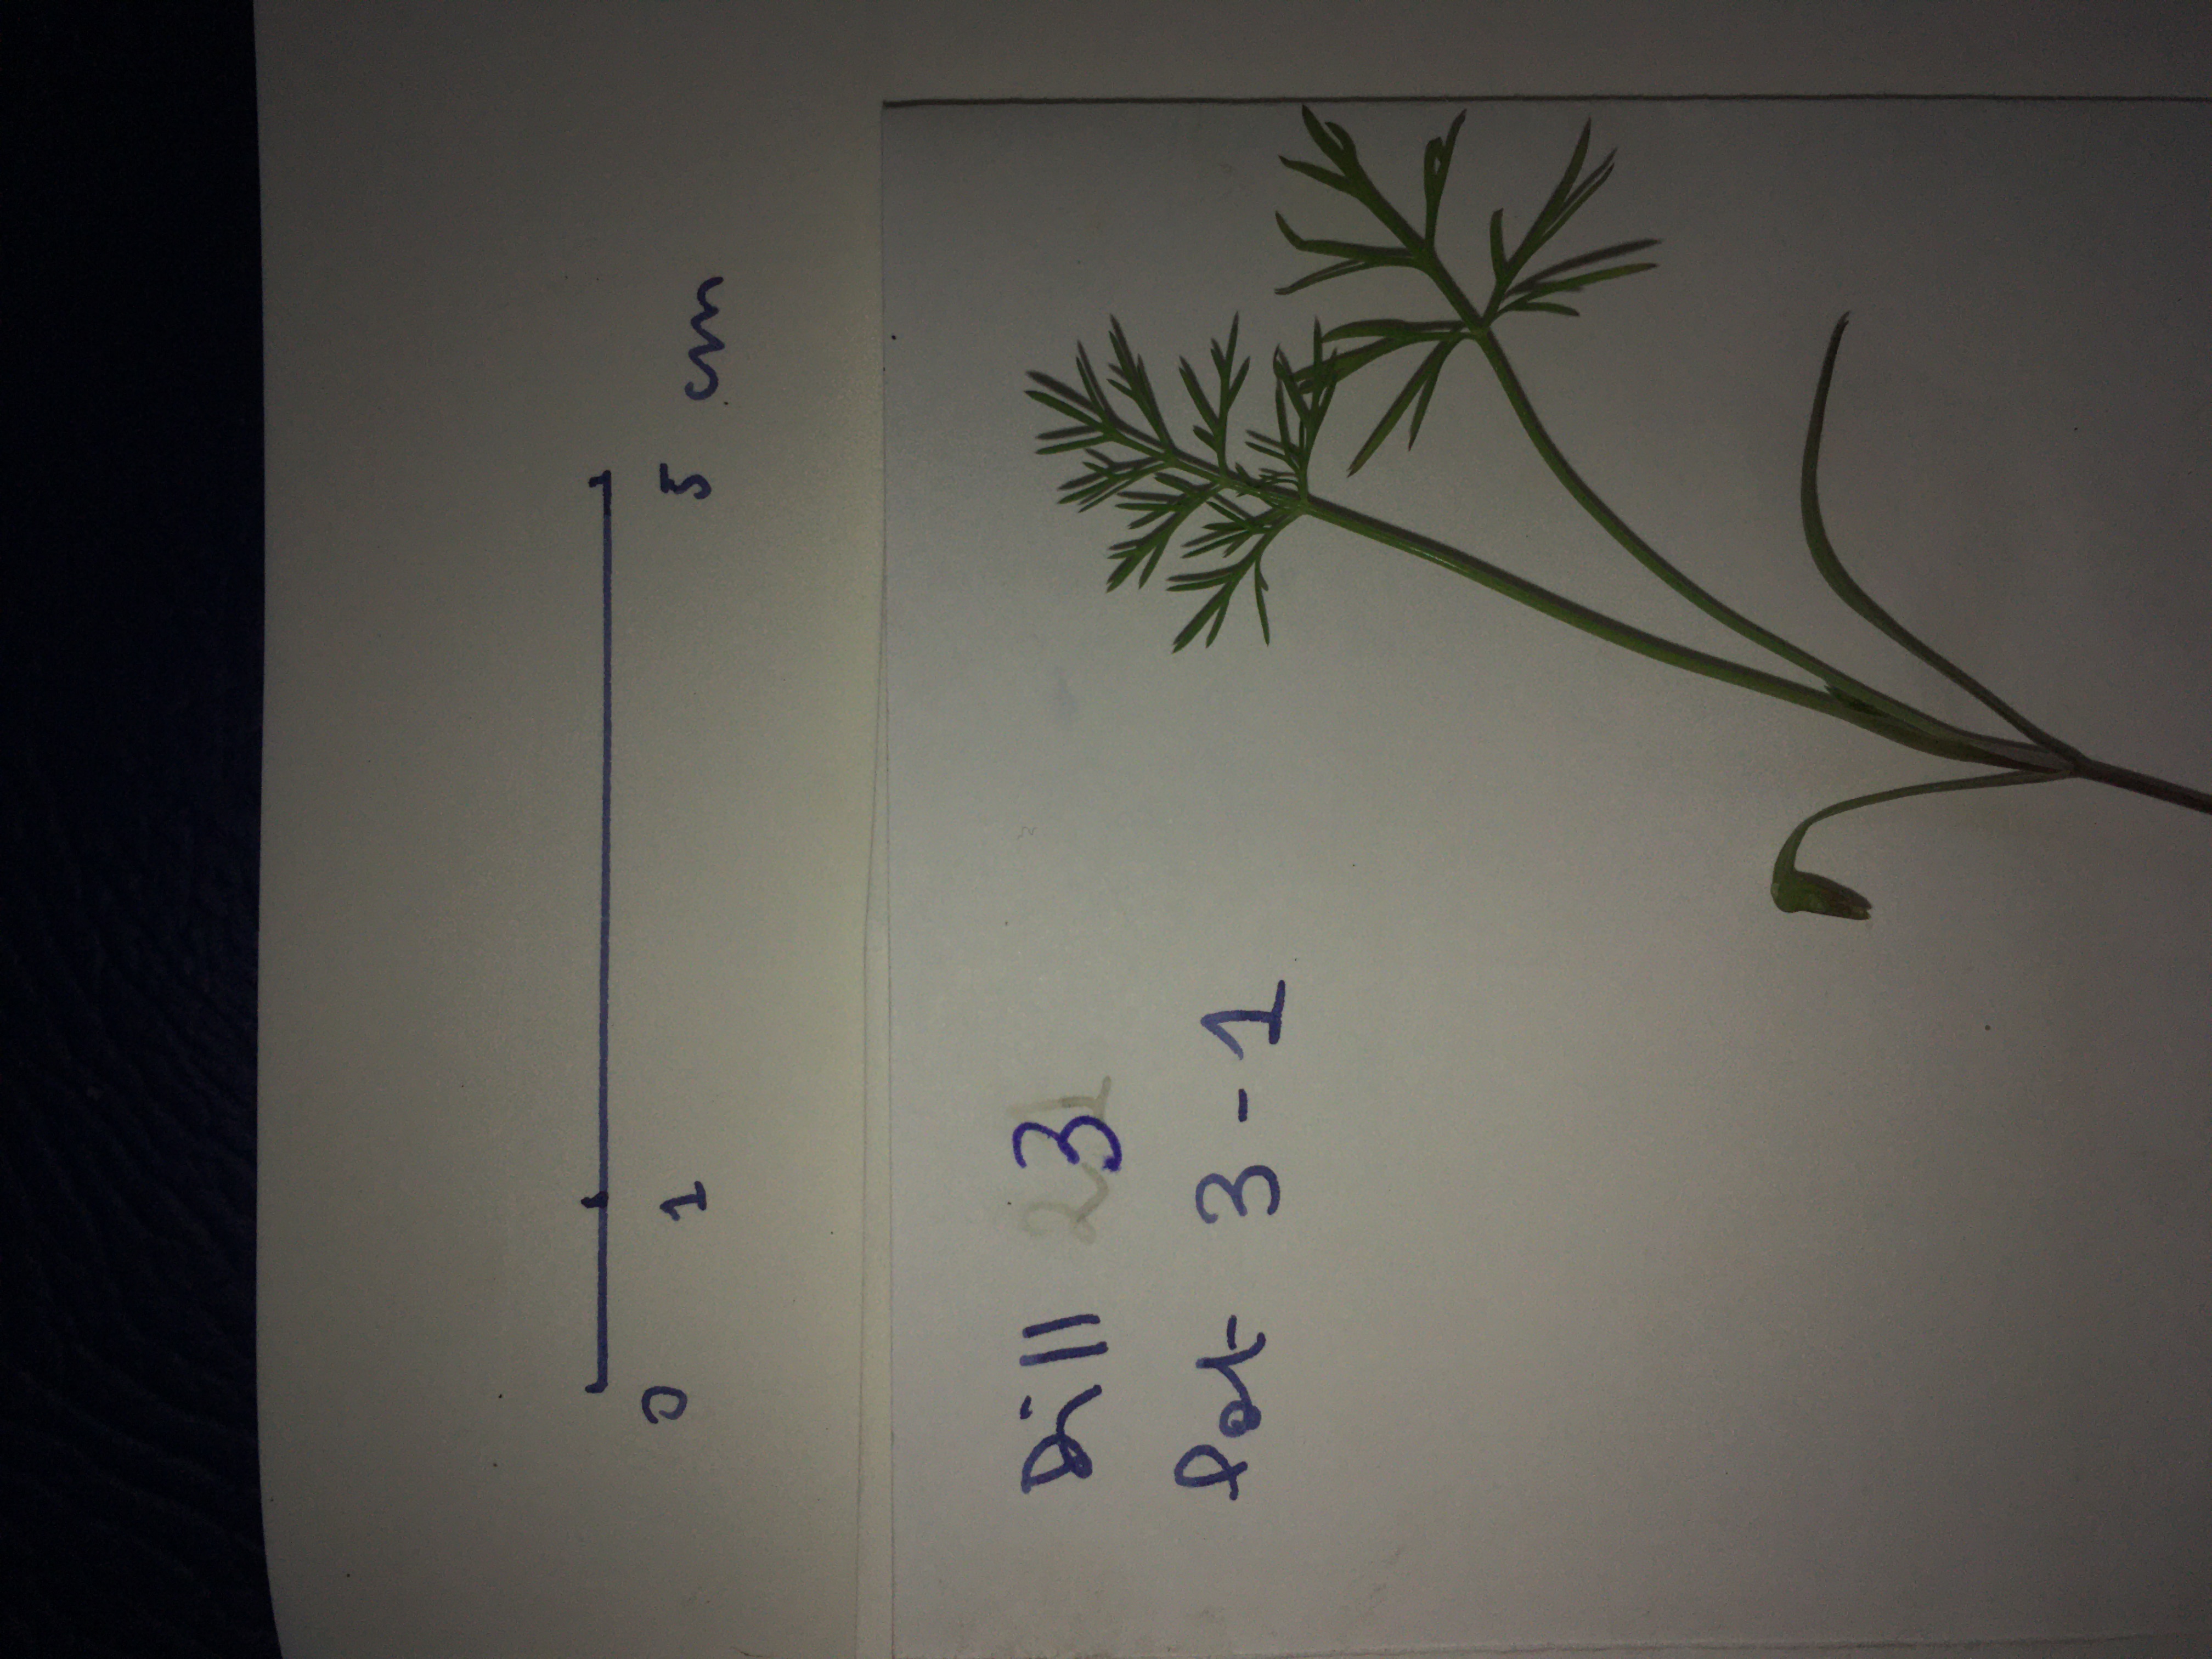 0 1 5 cm
Dill 3
Pot 3-1